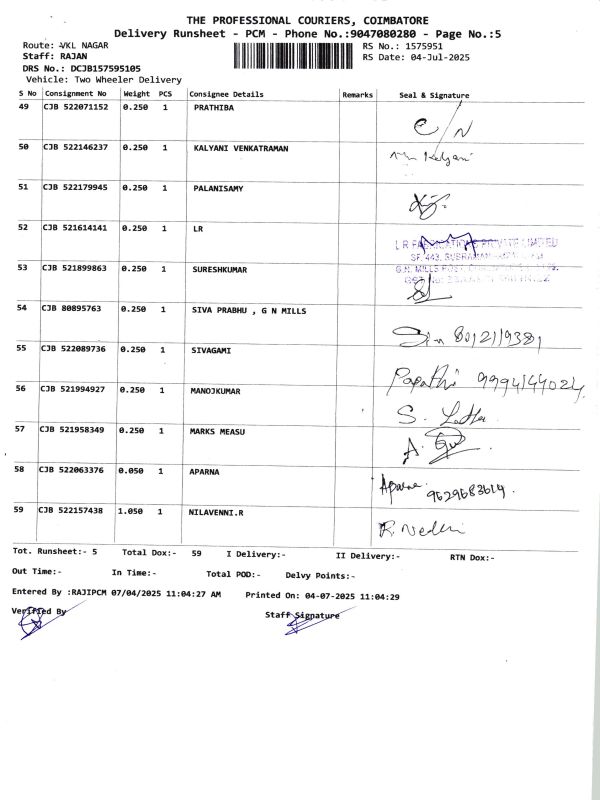 THE PROFESSIONAL COURIERS, COIMBATORE
Delivery Runsheet - PCM - Phone No.:9047080280 - Page No.:5
Route: VKL NAGAR RS No.: 1575951
Staff: RAJAN RS Date: 04-Jul-2025
DRS No.: DCJB157595105
Vehicle: Two Wheeler Delivery
S No Consignment No Weight PCS Consignee Details Remarks Seal & Signature
49 CJB 522071152 0.250 1 PRATHIBA
50 CJB 522146237 0.250 1 KALYANI VENKATRAMAN Kalyani
51 CJB 522179945 0.250 1 PALANISAMY
52 CJB 521614141 0.250 1 LR
L R PRIVATE LIMITED
SF. 443,
53 CJB 521899863 0.250 1 SURESHKUMAR G.N. MILLS POST,
54 CJB 80895763 0.250 1 SIVA PRABHU , G N MILLS
55 CJB 522089736 0.250 1 SIVAGAMI
56 CJB 521994927 0.250 1 MANOJKUMAR S. Latha
57 CJB 521958349 0.250 1 MARKS MEASU A.
58 CJB 522063376 0.050 1 APARNA Aparna 9629683619.
59 CJB 522157438 1.050 1 NILAVENNI.R
Tot. Runsheet:- 5 Total Dox:- 59 I Delivery:- II Delivery:- RTN Dox:-
Out Time:- In Time:- Total POD:- Delvy Points:-
Entered By :RAJIPCM 07/04/2025 11:04:27 AM Printed On: 04-07-2025 11:04:29
Verified By Staff Signature